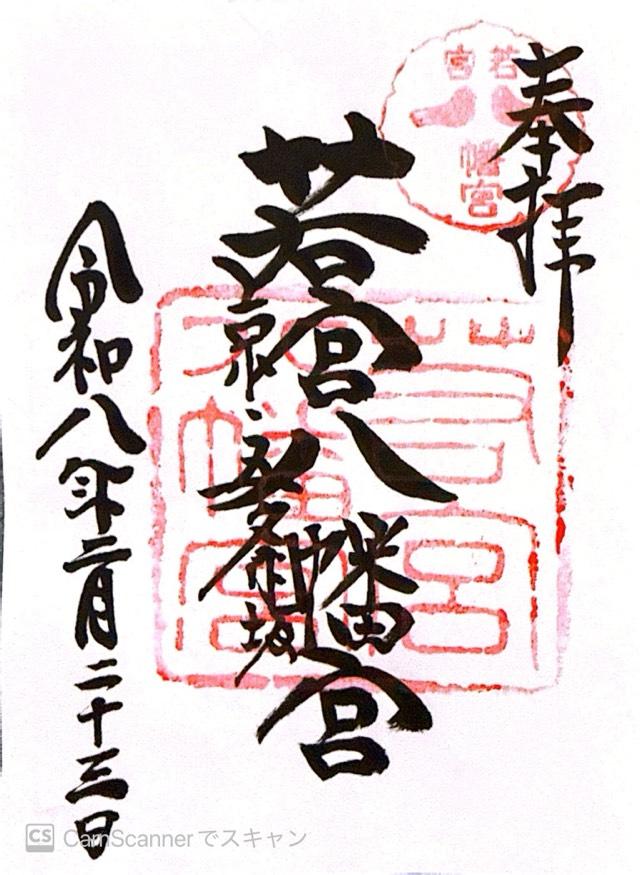 奉拝
若宮八幡宮
若宮八幡宮
京・五条坂
若宮八幡宮
令和八年二月二十三日
CS CamScannerでスキャン